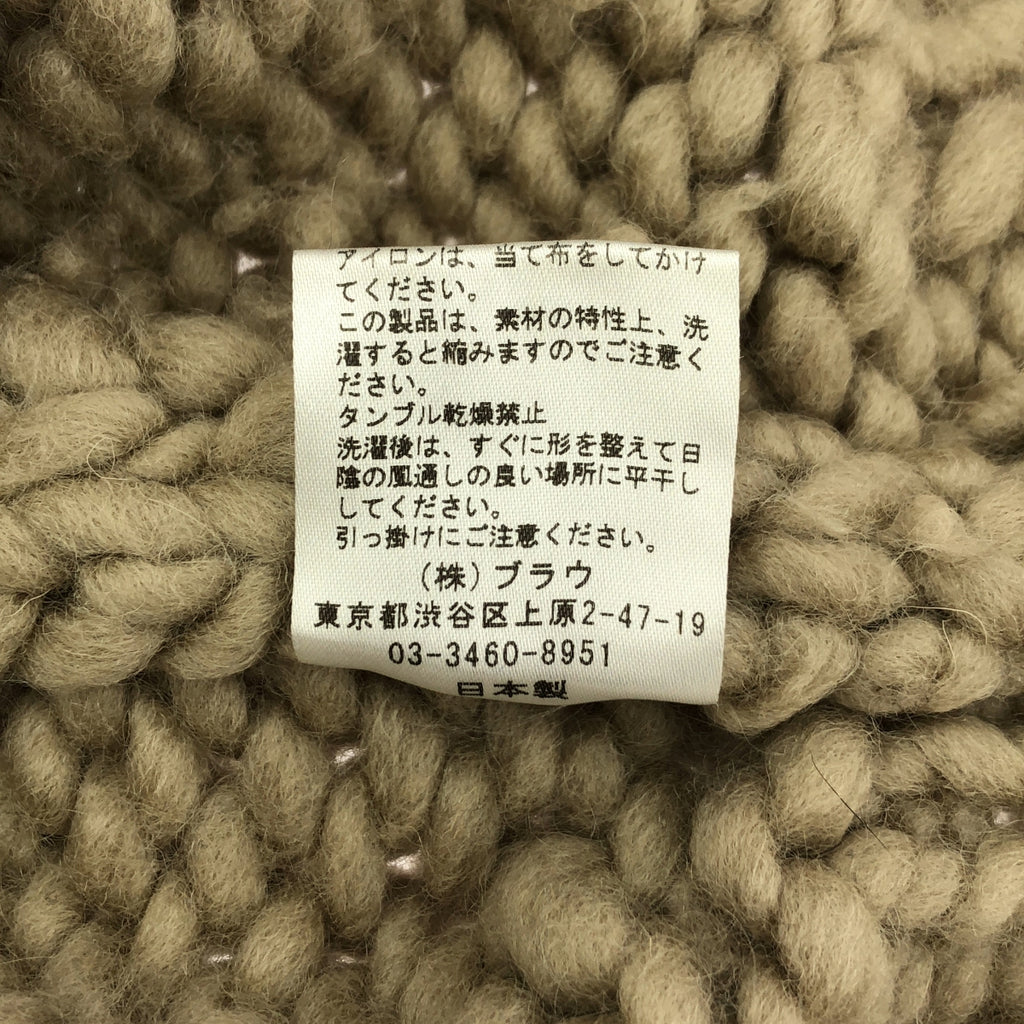 アイロンは、当て布をしてかけ
てください。
この製品は、素材の特性上、洗
濯すると縮みますのでご注意く
ださい。
タンブル乾燥禁止
洗濯後は、すぐに形を整えて日
陰の風通しの良い場所に平干し
してください。
引っ掛けにご注意ください。
(株)ブラウ
東京都渋谷区上原2-47-19
03-3460-8951
日本製